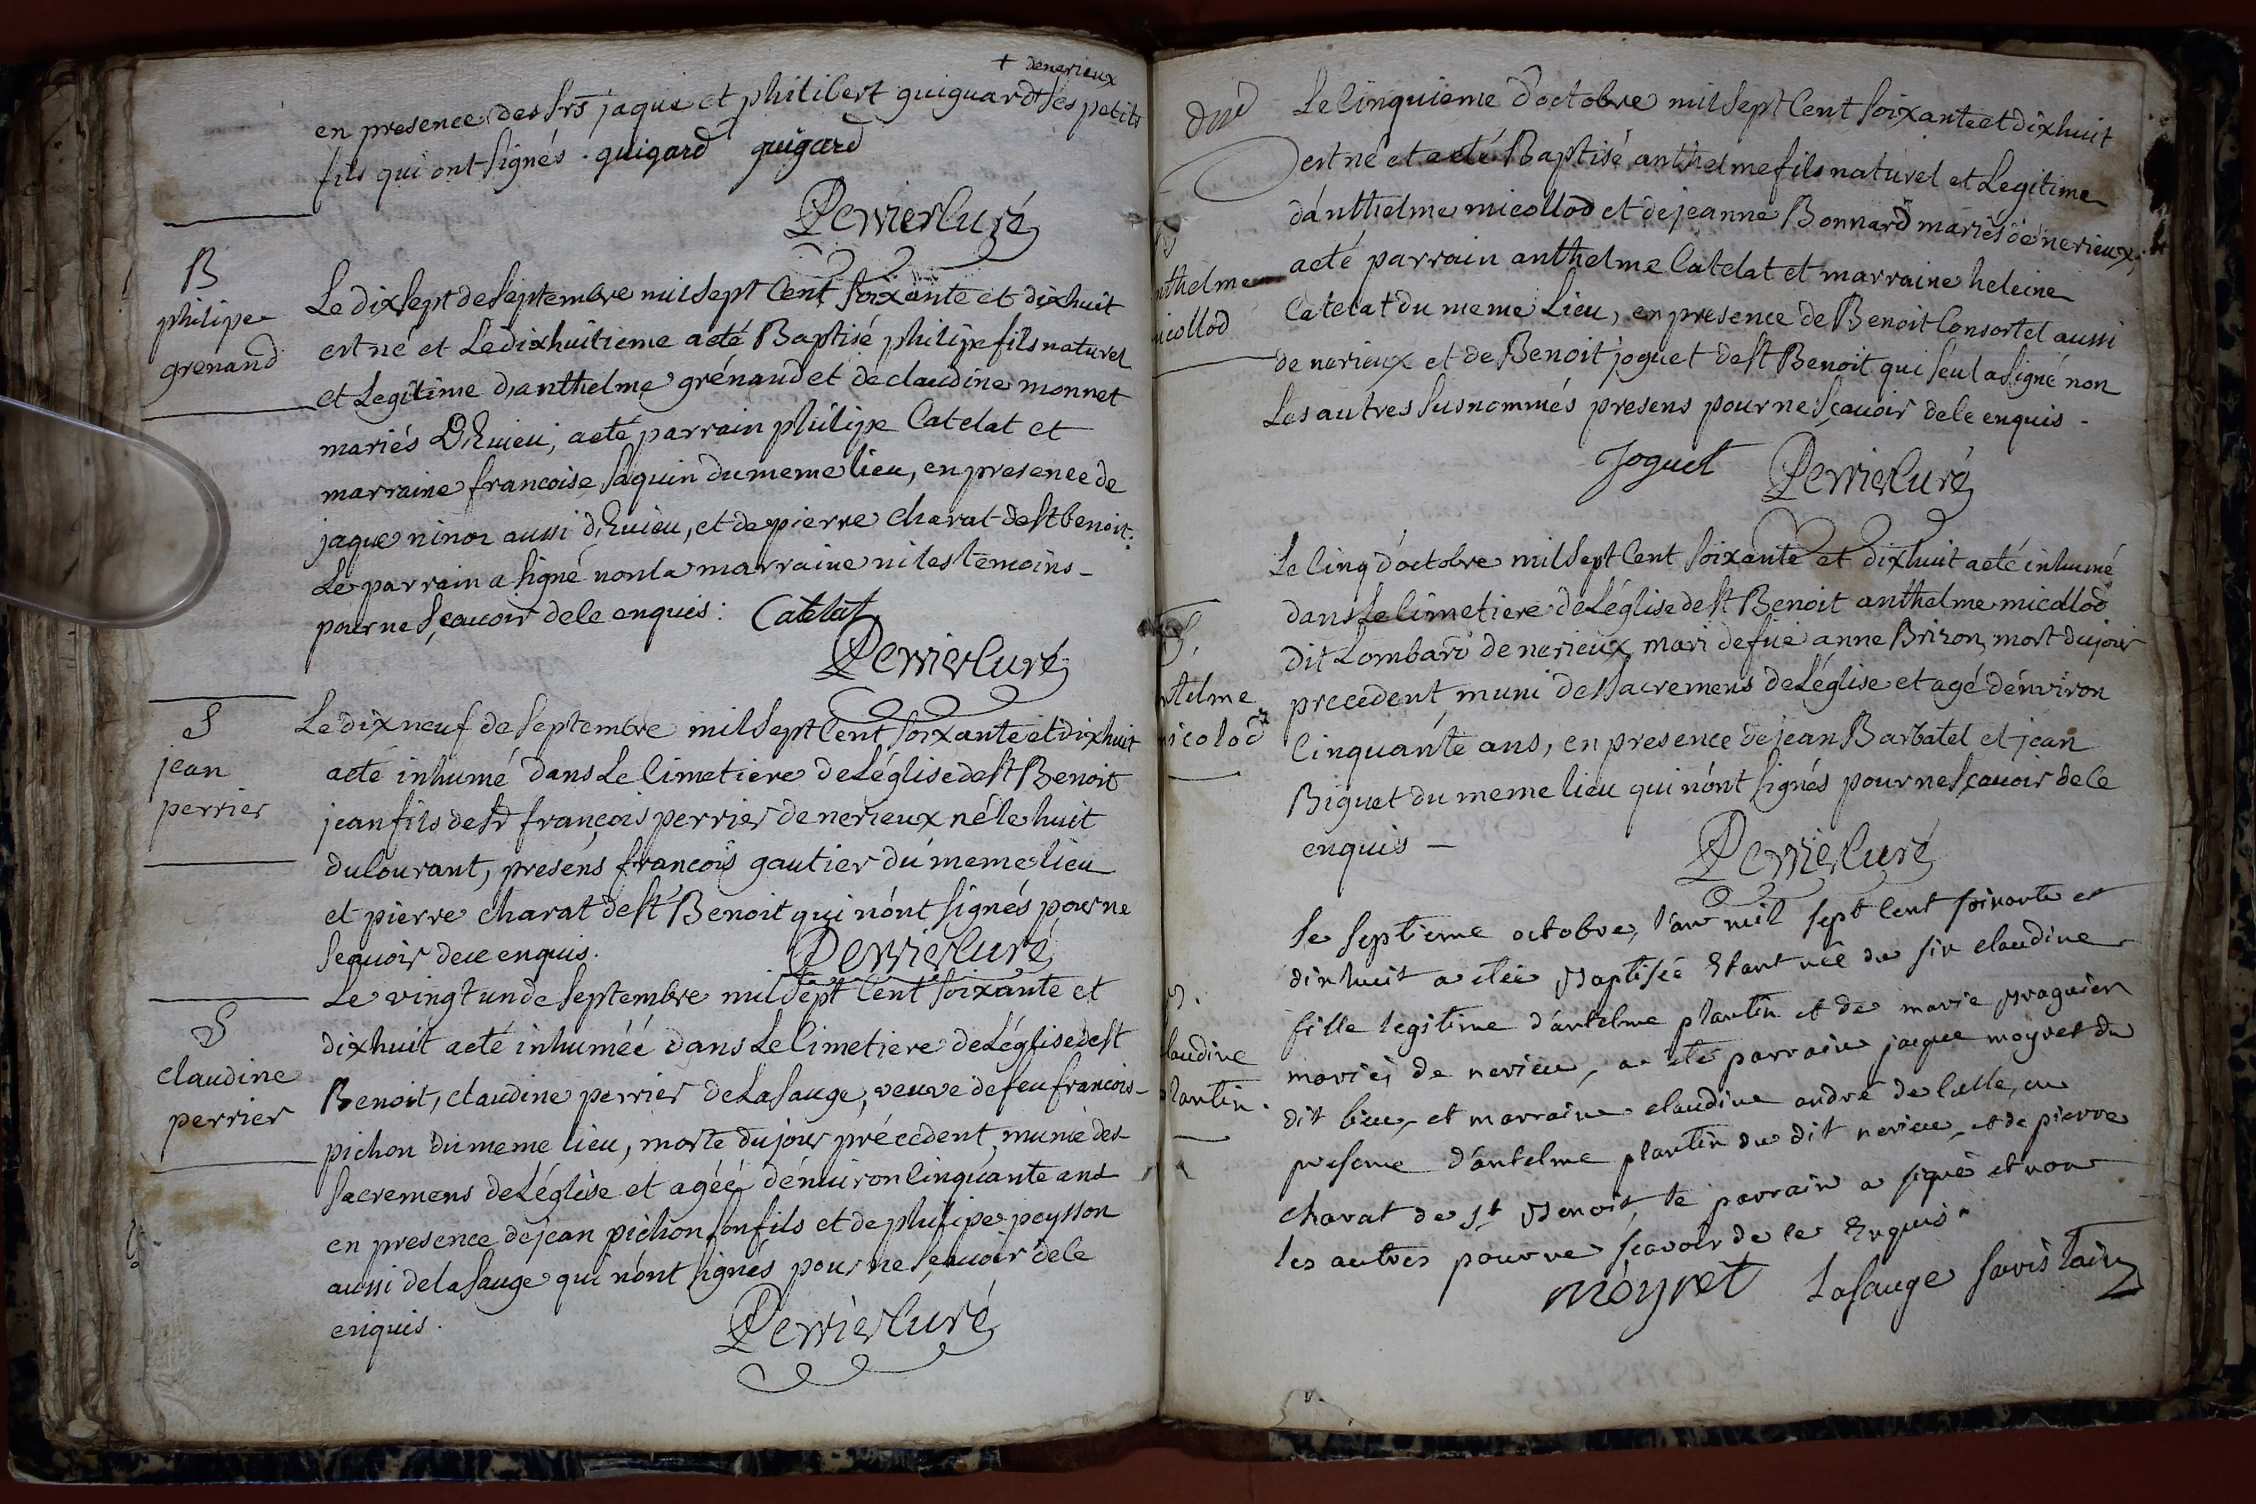 + denerieux
en presence des srs jaque et philibert guiguard+ ses petits
fils qui ont signés . guigard guigard
Perrier curé
B
philipe
grenand
Le dix sept de septembre mil sept cent soixante et dix huit
est né et Le dix huitieme a eté Baptisé philipe fils naturel
et Legitime d'anthelme grénaud et de claudine monnet
mariés D'Evieu, a eté parrain philipe Catelat et
marraine francoise saquin du meme lieu, en presence de
jaque ninoz aussi d'Evieu, et de pierre charat de st benoit:
Le parrain a signé non la marraine ni les temoins
pour ne sçavoir de ce enquis : Catelat
Perrier curé
S
jean
perrier
Le dix neuf de septembre mil sept cent soixante et dix huit
a eté inhumé dans Le cimetiere de L'église de st Benoit
jean fils de sr françois perrier de nerieux né le huit
du courant, presens françois gautier du meme lieu
et pierre charat de st Benoit qui n'ont signés pour ne
sçavoir de ce enquis.
Perrier curé
S
claudine
perrier
Le vingt un de septembre mil sept cent soixante et
dix huit a eté inhumée dans Le cimetiere de L'église de st
Benoit, claudine perrier de La sauge, veuve de feu francois
pichon du meme lieu, morte du jour précedent, munie des
sacremens de L'église et agée d'environ cinquante ans
en presence de jean pichon son fils et de philipe peysson
aussi de la sauge qui n'ont signés pour ne sçavoir de ce
enquis.
Perrier curé
nthelme
micollod
Le cinquieme d'octobre mil sept cent soixante et dix huit
est né et a eté Baptisé anthelme fils naturel et Legitime
d'anthelme micollod et de jeanne Bonnard mariés de nerieux,
a eté parrain anthelme Catelat et marraine heleine
Catelat du meme Lieu, en presence de Benoit Consortel aussi
de nerieux et de Benoit joguet de st Benoit qui seul a signé non
Les autres susnommés presens pour ne sçavoir de ce enquis -
Joguet Perrier curé
S
thelme
icolod
Le cinq d'octobre mil sept cent soixante et dix huit a eté inhumé
dans Le cimetiere de L'église de st Benoit anthelme micollod
dit Lombard de nerieux mari de fue anne Brizon, mort du jour
precedent, muni des sacremens de L'église et agé d'environ
cinquante ans, en presence de jean Barbatel et jean
Biguet du meme lieu qui n'ont signés pour ne sçavoir de ce
enquis -
Perrier curé
claudine
plantin
Le septieme octobre, l'an mil sept cent soixante et
dix huit a etée Baptisée Etant née du six claudine
fille legitime d'antelme plantin et de marie
mariés de nerieu, a eté parrain jaque moyret du
dit lieu, et marraine claudine andré de , en
presence d'antelme plantin du dit nerieu, et de pierre
charat de st Benoit, le parrain a signé et non
les autres pour ne sçavoir de ce Enquis.
moyret Lasauge